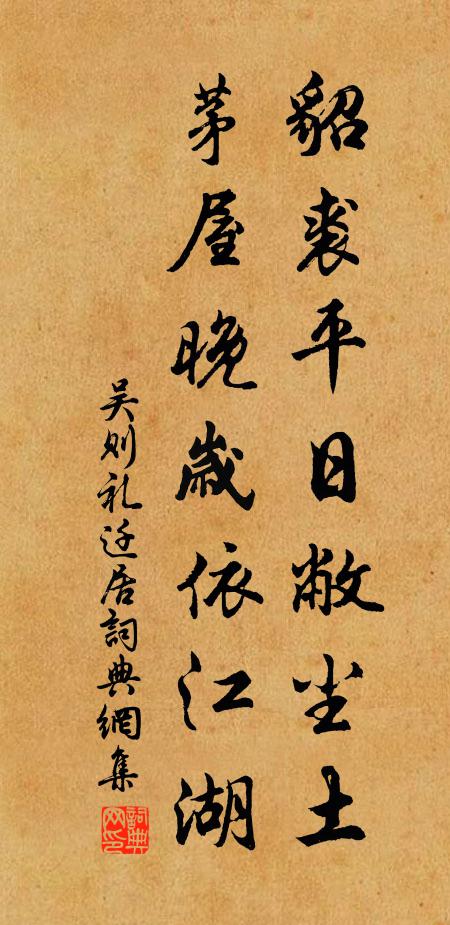 貂裘平日敝尘土
茅屋晚歳依江湖
吴则礼迁居詞典網集
詞典网印